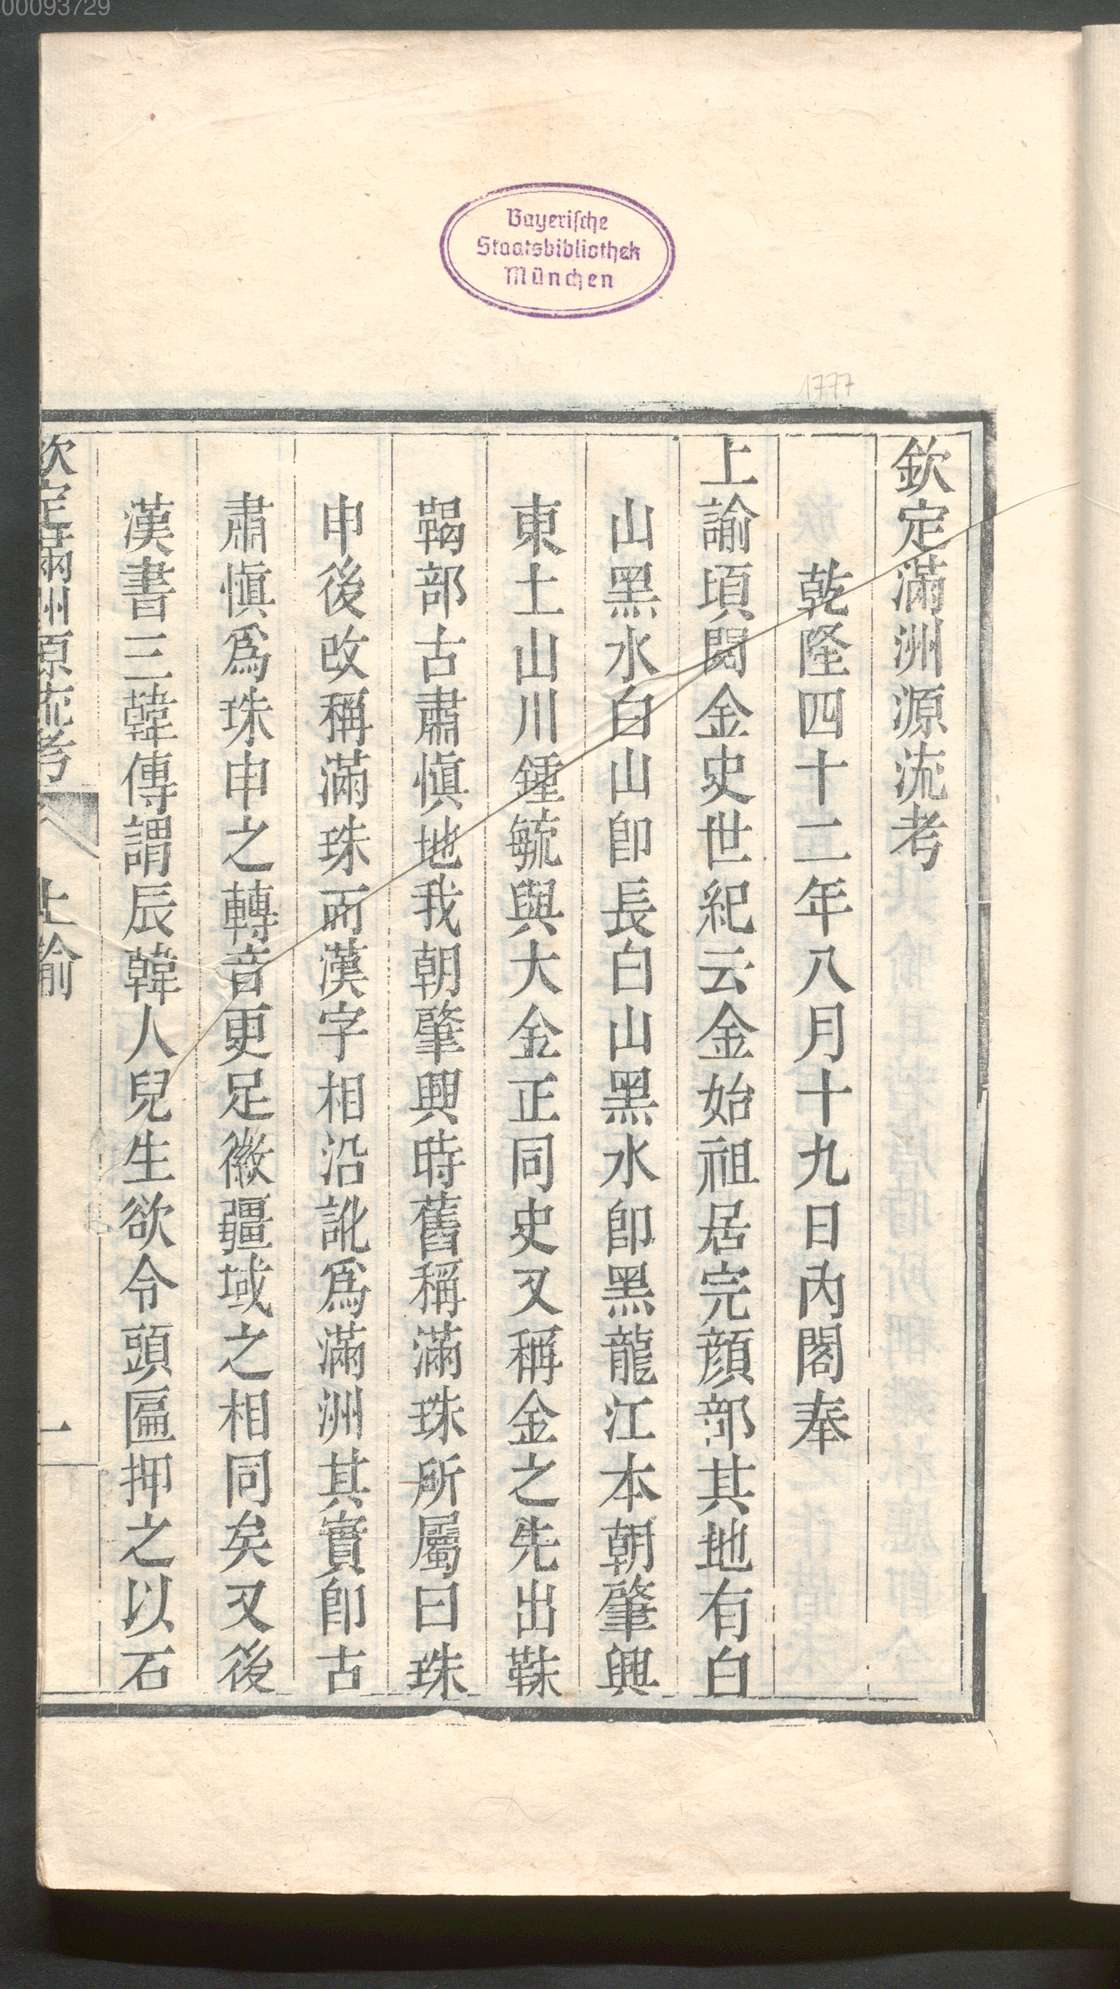 00093729
Bayerische
Staatsbibliothek
München
1777
欽定滿洲源流考
乾隆四十二年八月十九日內閣奉
上諭頃閱金史世紀云金始祖居完顔部其地有白
山黑水白山卽長白山黑水卽黑龍江本朝肇興
東土山川鍾毓與大金正同史又稱金之先出靺
鞨部古肅愼地我朝肇興時舊稱滿珠所屬曰珠
申後改稱滿珠而漢字相沿訛爲滿洲其實卽古
肅愼爲珠申之轉音更足徵疆域之相同矣又後
漢書三韓傳謂辰韓人兒生欲令頭匾押之以石
欽定滿洲源流考 上諭 一